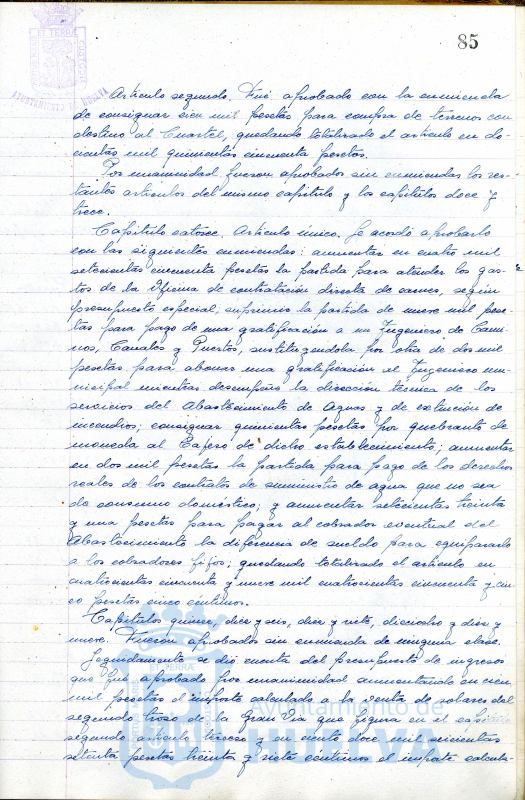 85
AYUNTAMIENTO DE HUELVA
Artículo segundo. Fué aprobado con la enmienda
de consignar cien mil pesetas para compra de terrenos con
destino al Cuartel, quedando totalizado el artículo en do-
cientas mil quinientas cincuenta pesetas.
Por unanimidad fueron aprobados sin enmiendas los res-
tantes artículos del mismo capítulo y los capítulos doce y
trece.
Capítulo catorce. Artículo único. Se acordó aprobarlo
con las siguientes enmiendas: aumentar en cuatro mil
setecientas cincuenta pesetas la partida para atender los gas-
tos de la Oficina de contratación directa de carnes, según
presupuesto especial; suprimir la partida de nueve mil pese-
tas para pago de una gratificación a un Ingeniero de Cami-
nos, Canales y Puertos, sustituyéndola por otra de dos mil
pesetas para abonar una gratificación al Ingeniero mu-
nicipal mientras desempeñe la dirección técnica de los
servicios del Abastecimiento de Aguas y de extinción de
incendios; consignar quinientas pesetas por quebranto de
moneda al Cajero de dicho establecimiento; aumentar
en dos mil pesetas la partida para pago de los derechos
reales de los contratos de suministro de agua que no sea
de consumo doméstico; y aumentar setecientas treinta
y una pesetas para pagar al cobrador eventual del
Abastecimiento la diferencia de sueldo para equipararlo
a los cobradores fijos; quedando totalizado el artículo en
cuatrocientas cincuenta y nueve mil cuatrocientas cincuenta y cin-
co pesetas cinco céntimos.
Capítulos quince, diez y seis, diez y siete, dieciocho y diez y
nueve. Fueron aprobados sin enmienda de ninguna clase.
Seguidamente se dió cuenta del presupuesto de ingresos
que fué aprobado por unanimidad aumentando en cien
mil pesetas el importe calculado a la venta de solares del
segundo trozo de la Gran Vía que figura en el capítulo
segundo artículo tercero y en ciento doce mil seiscientas
setenta pesetas treinta y siete céntimos el importe calcula-
Ayuntamiento de
HUELVA